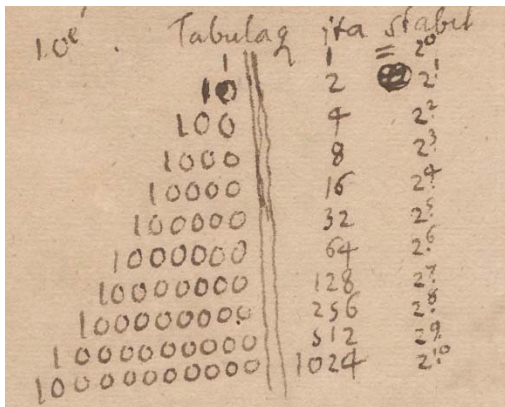 10e. Tabulaq ita stabit
1 1 = 2^0
10 2 2^1
100 4 2^2
1000 8 2^3
10000 16 2^4
100000 32 2^5
1000000 64 2^6
10000000 128 2^7
100000000. 256 2^8
1000000000 512 2^9
10000000000 1024 2^10